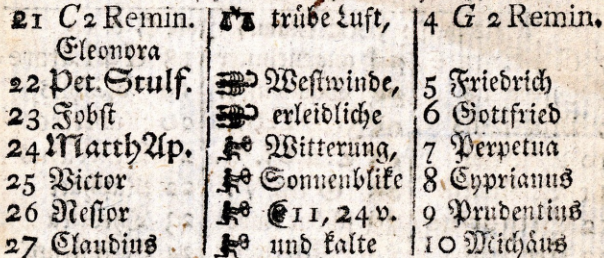 21 C 2 Remin. trübe Luft, 4 G 2 Remin.
Eleonora
22 Pet. Stulf. Westwinde, 5 Friedrich
23 Jobst erleidliche 6 Gottfried
24 Matth Ap. Witterung, 7 Perpetua
25 Victor Sonnenblike 8 Cyprianus
26 Nestor 11, 24 v. 9 Prudentius
27 Claudius und kalte 10 Michäus